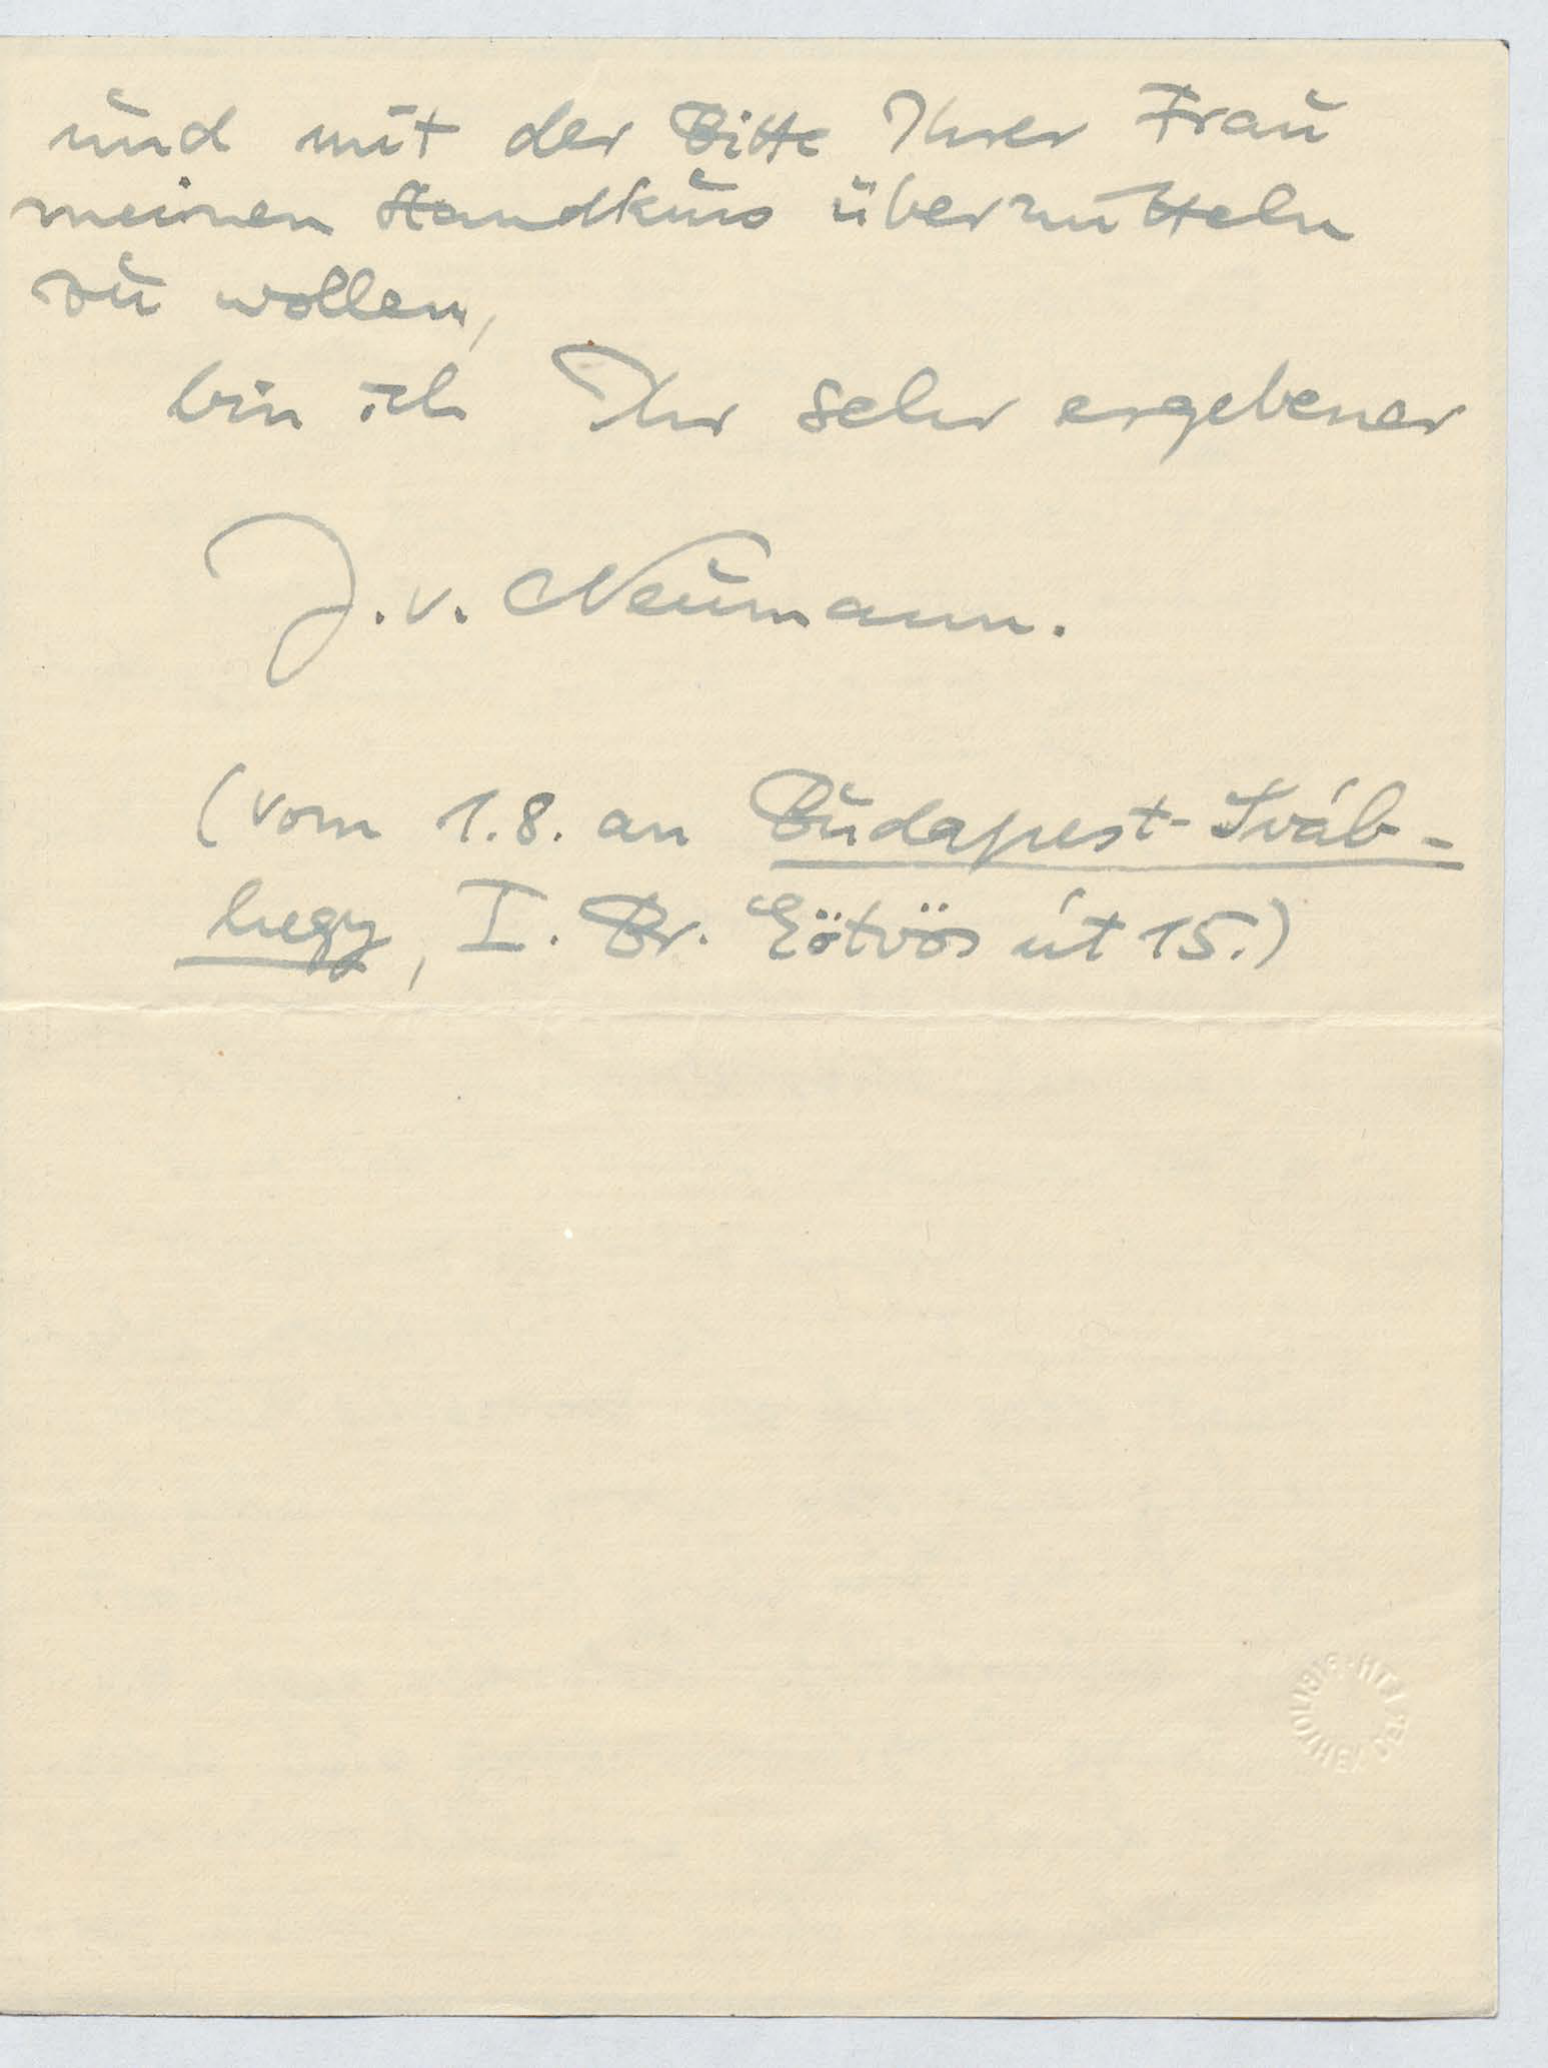 und mit der Bitte Ihrer Frau
meinen Handkuss übermitteln
zu wollen,
bin ich Ihr sehr ergebener
J. v. Neumann.
(vom 1.8. an Budapest-Sváb-
hegy, I. Br. Eötvös út 15.)
BIBLIOTHEK DER ETH